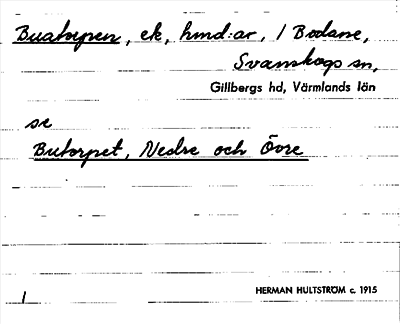 Buatorpen, ek, hmd:ar, i Bodane,
Svanskogs sn,
Gillbergs hd, Värmlands län
se
Butorpet, Nedre och Övre
HERMAN HULTSTRÖM c. 1915